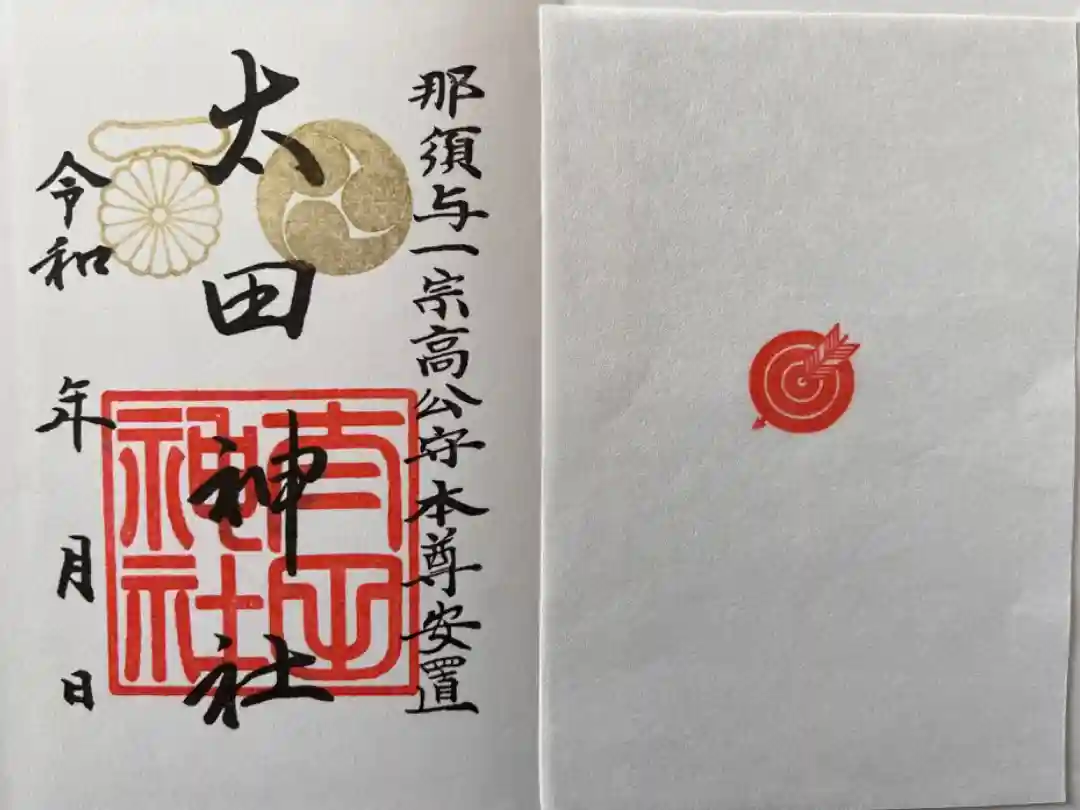 那須与一宗高公守本尊安置
太田神社
太田神社
令和 年 月 日